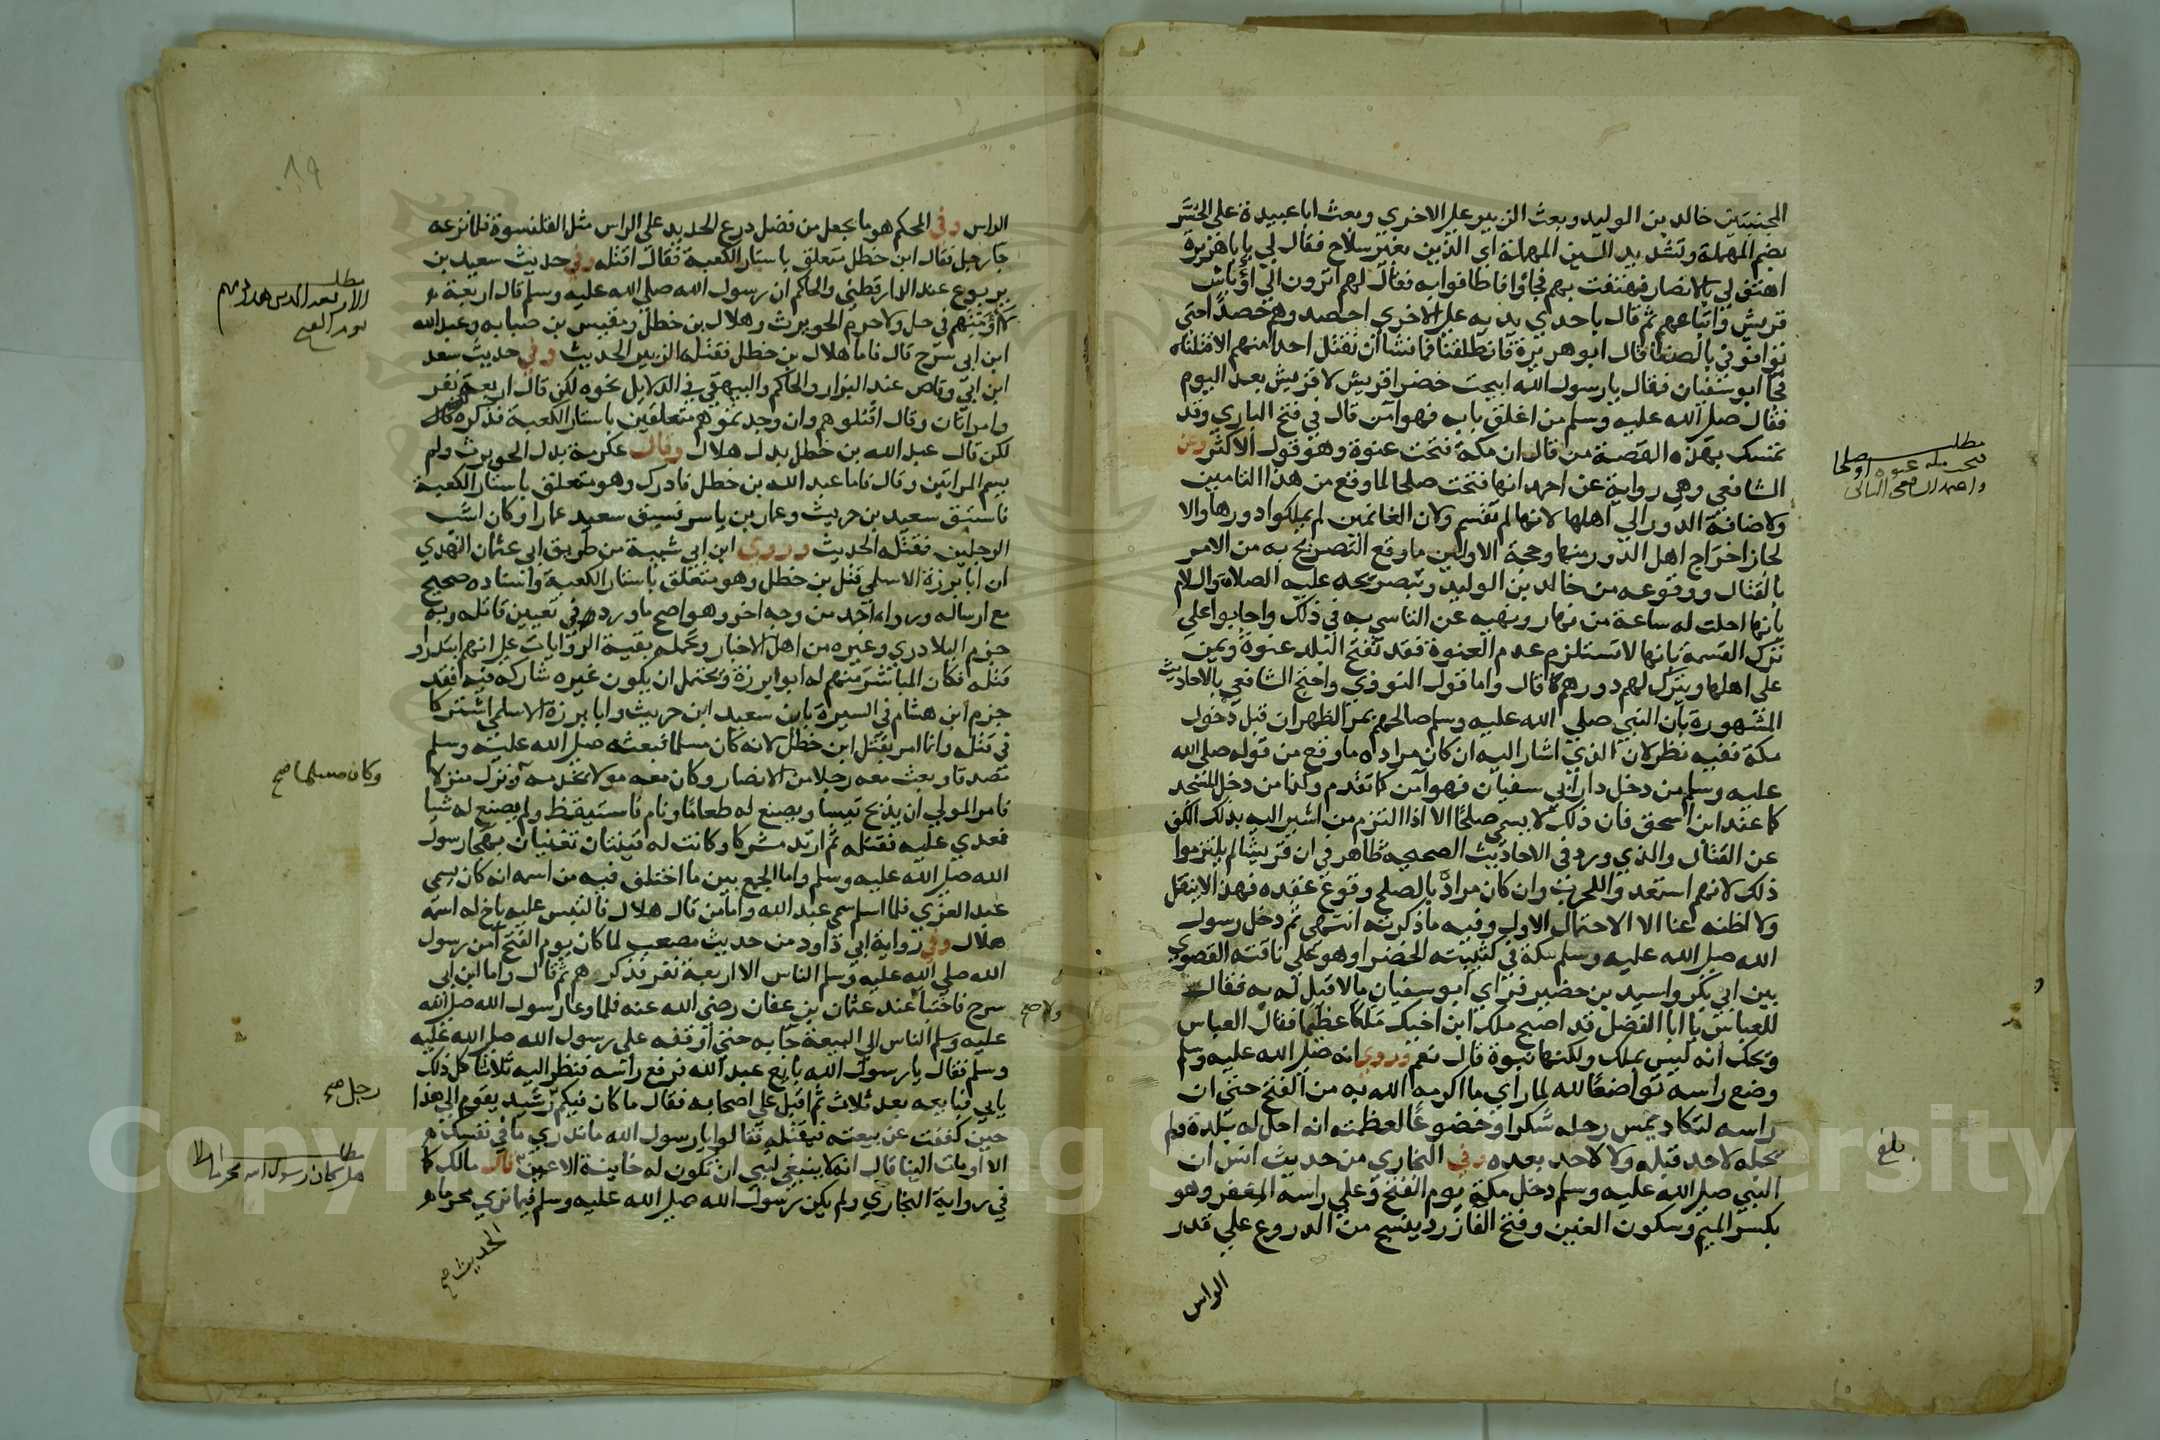 المجنبتين خالد بن الوليد وبعث الزبير على الاخرى وبعث اباعبيدة على الحسر
بضم المهملة وتشديد السين المهملة اي الذين بغير سلاح فقال لي يا باهريرة
اهتف لي بالانصار فهتفت بهم فجاؤا فاطافوا به فقال لهم اترون الي اوباش
قريش واتباعهم ثم قال باحدي يديه على الاخرى احصدوهم حصدا حتى
توافوني بالصفا قال ابو هريرة فانطلقنا فما نشا ان نقتل احدا منهم الا قتلناه
فجا ابو سفيان فقال يا رسول الله ابيحت خضرا قريش لا قريش بعد اليوم
فقال صلى الله عليه وسلم من اغلق بابه فهو آمن قال في فتح الباري وقد
تمسك بهذه القصة من قال ان مكة فتحت عنوة وهو قول الاكثر وعن
الشافعي وهي رواية عن احمد انها فتحت صلحا لما وقع من هذا التامين
ولاضافة الدور الي اهلها لانها لم تقسم ولان الغانمين لم يملكوا دورها والا
لجاز اخراج اهل الدور منها وحجة الاولين ما وقع التصريح به من الامر
بالقتال ووقوعه من خالد بن الوليد وتبصريحه عليه الصلاة والسلام
بانها احلت له ساعة من نهار ونهيه عن الناسي به في ذلك واجابوا على
ترك القسمة بانها لا تستلزم عدم العنوة فقد تفتح البلد عنوة ويمن
على اهلها ويترك لهم دورهم قال واما قول النووي واحتج الشافعي بالاحاديث
المشهورة بان النبي صلي الله عليه وسلم صالحهم بمر الظهران قبل دخول
مكة ففيه نظر لان الذي اشار اليه ان كان مراده ما وقع من قوله صلى الله
عليه وسلم من دخل دار ابي سفيان فهو آمن كما تقدم وكذا من دخل المسجد
كما عند ابن اسحق فان ذلك لا يسمي صلحا الا اذا التزم من اشير اليه بذلك الكف
عن القتال والذي ورد في الاحاديث الصحيحة ظاهر في ان قريشا لم يلتزموا
ذلك لانهم استعدوا للحرب وان كان مراده بالصلح وقوع عقده فهذا لا ينقل
ولا اظنه عنا الا الاحتمال الاول وفيه ما ذكرته انتهى ثم دخل رسول
الله صلى الله عليه وسلم مكة في كتيبته الخضرا وهو على ناقته القصوي
بين ابي بكر واسيد بن حضير فراي ابو سفيان ما لا قبل له به فقال
للعباس يا ابا الفضل قد اصبح ملك ابن اخيك ملكا عظيما فقال العباس
ويحك انه ليس بملك ولكنها نبوة قال نعم وروي انه صلى الله عليه وسلم
وضع راسه تواضعا لله لما راي ما اكرمه الله به من الفتح حتى ان
راسه لتكاد يمس رحله شكرا وخضوعا لعظمته ان احل له بلده ولم
يحله لاحد قبله ولا لاحد بعده وفي البخاري من حديث انس ان
النبي صلى الله عليه وسلم دخل مكة يوم الفتح وعلي راسه المغفر وهو
بكسر الميم وسكون الغين وفتح الفا زرد ينسج من الدروع علي قدر
الراس
مطلب
واحمد
بلغ
الراس وفي المحكم هو ما يجعل من فضل درع الحديد على الراس مثل القلنسوة فلما نزعه
جا رجل فقال ابن خطل متعلق باستار الكعبة فقال اقتله وفي حديث سعيد بن
يربوع عند الدارقطني والحاكم ان رسول الله صلي الله عليه وسلم قال اربعة
لا اؤمنهم في حل ولا حرم الحويرث وهلال بن خطل ومقيس بن صبابه وعبد الله
ابن ابى سرح قال فاما هلال بن خطل فقتله الزبير الحديث وفي حديث سعد
ابن ابي وقاص عند البزار والحاكم والبيهقي في الدلايل نحوه لكن قال اربعة نفر
وامراتان وقال اقتلوهم وان وجدتموهم متعلقين باستار الكعبة فذكره
لكن قال عبد الله بن خطل بدل هلال وقال عكرمة بدل الحويرث ولم
يسم المراتين وقال فاما عبد الله بن خطل فادرك وهو متعلق باستار الكعبة
فاستبق سعيد بن حريث وعمار بن ياسر فسبق سعيد عمارا وكان اشب
الرجلين فقتله الحديث وروي ابن ابي شيبة من طريق ابي عثمان النهدي
ان ابا برزة الاسلمي قتل بن خطل وهو متعلق باستار الكعبة واسناده صحيح
مع ارساله ورواه احمد من وجه اخر وهو اصح ما ورد في تعيين قاتله وبه
جزم البلادري وغيره من اهل الاخبار وتحمل بقية الروايات على انهم ابتدروا
قتله فكان المباشر منهم له ابو ابرزة ويحتمل ان يكون غيره شاركه فيه فقد
جزم ابن هشام في السيرة بان سعيد ابن حريث وابا برزة الاسلمي اشتركا
في قتله وانما امر بقتل ابن خطل لانه كان مسلما فبعثه صلى الله عليه وسلم
مصدقا وبعث معه رجلا من الانصار وكان معه مولا يخدمه ونزل منزلا
فامر المولي ان يذبح تيسا ويصنع له طعاما ونام فاستيقظ ولم يصنع له شيا
فعدي عليه فقتله ثم ارتد مشركا وكانت له قينتان تغنيان بهجا رسول
الله صلى الله عليه وسلم واما الجمع بين ما اختلف فيه من اسمه انه كان يسمى
عبد العزي فلما اسلم سمي عبد الله واما من قال هلال فالتبس عليه باخ له اسمه
هلال وفي رواية ابي داود من حديث مصعب لما كان يوم الفتح آمن رسول
الله صلي الله عليه وسلم الناس الا اربعة نفر فذكرهم ثم قال واما ابن ابى
سرح فاختبا عند عثمان بن عفان رضي الله عنه فلما دعا رسول الله صلى الله
عليه وسلم الناس الى البيعة جا به حتى اوقفه على رسول الله صلى الله عليه
وسلم فقال يا رسول الله بايع عبد الله فرفع راسه فنظر اليه ثلاثا كل ذلك
يابي فبايعه بعد ثلاث ثم اقبل على اصحابه فقال ما كان فيكم رشيد يقوم الى هذا
حين كففت عن بيعته فيقتله فقالوا يا رسول الله ما ندري ما في نفسك
الا اومات الينا قال انه لا ينبغي لنبي ان تكون له خاينة الاعين قال مالك كما
في رواية البخاري ولم يكن رسول الله صلى الله عليه وسلم فيما نري محرما
الحديث صح
٨٩
مطلب
الاربعة الذين
يوم الفتح
وكان مسلما صح
ولا صح
رجل صح
مطلب
هل كان رسول الله محرما ام لا
Copyright © King Saud University
1957